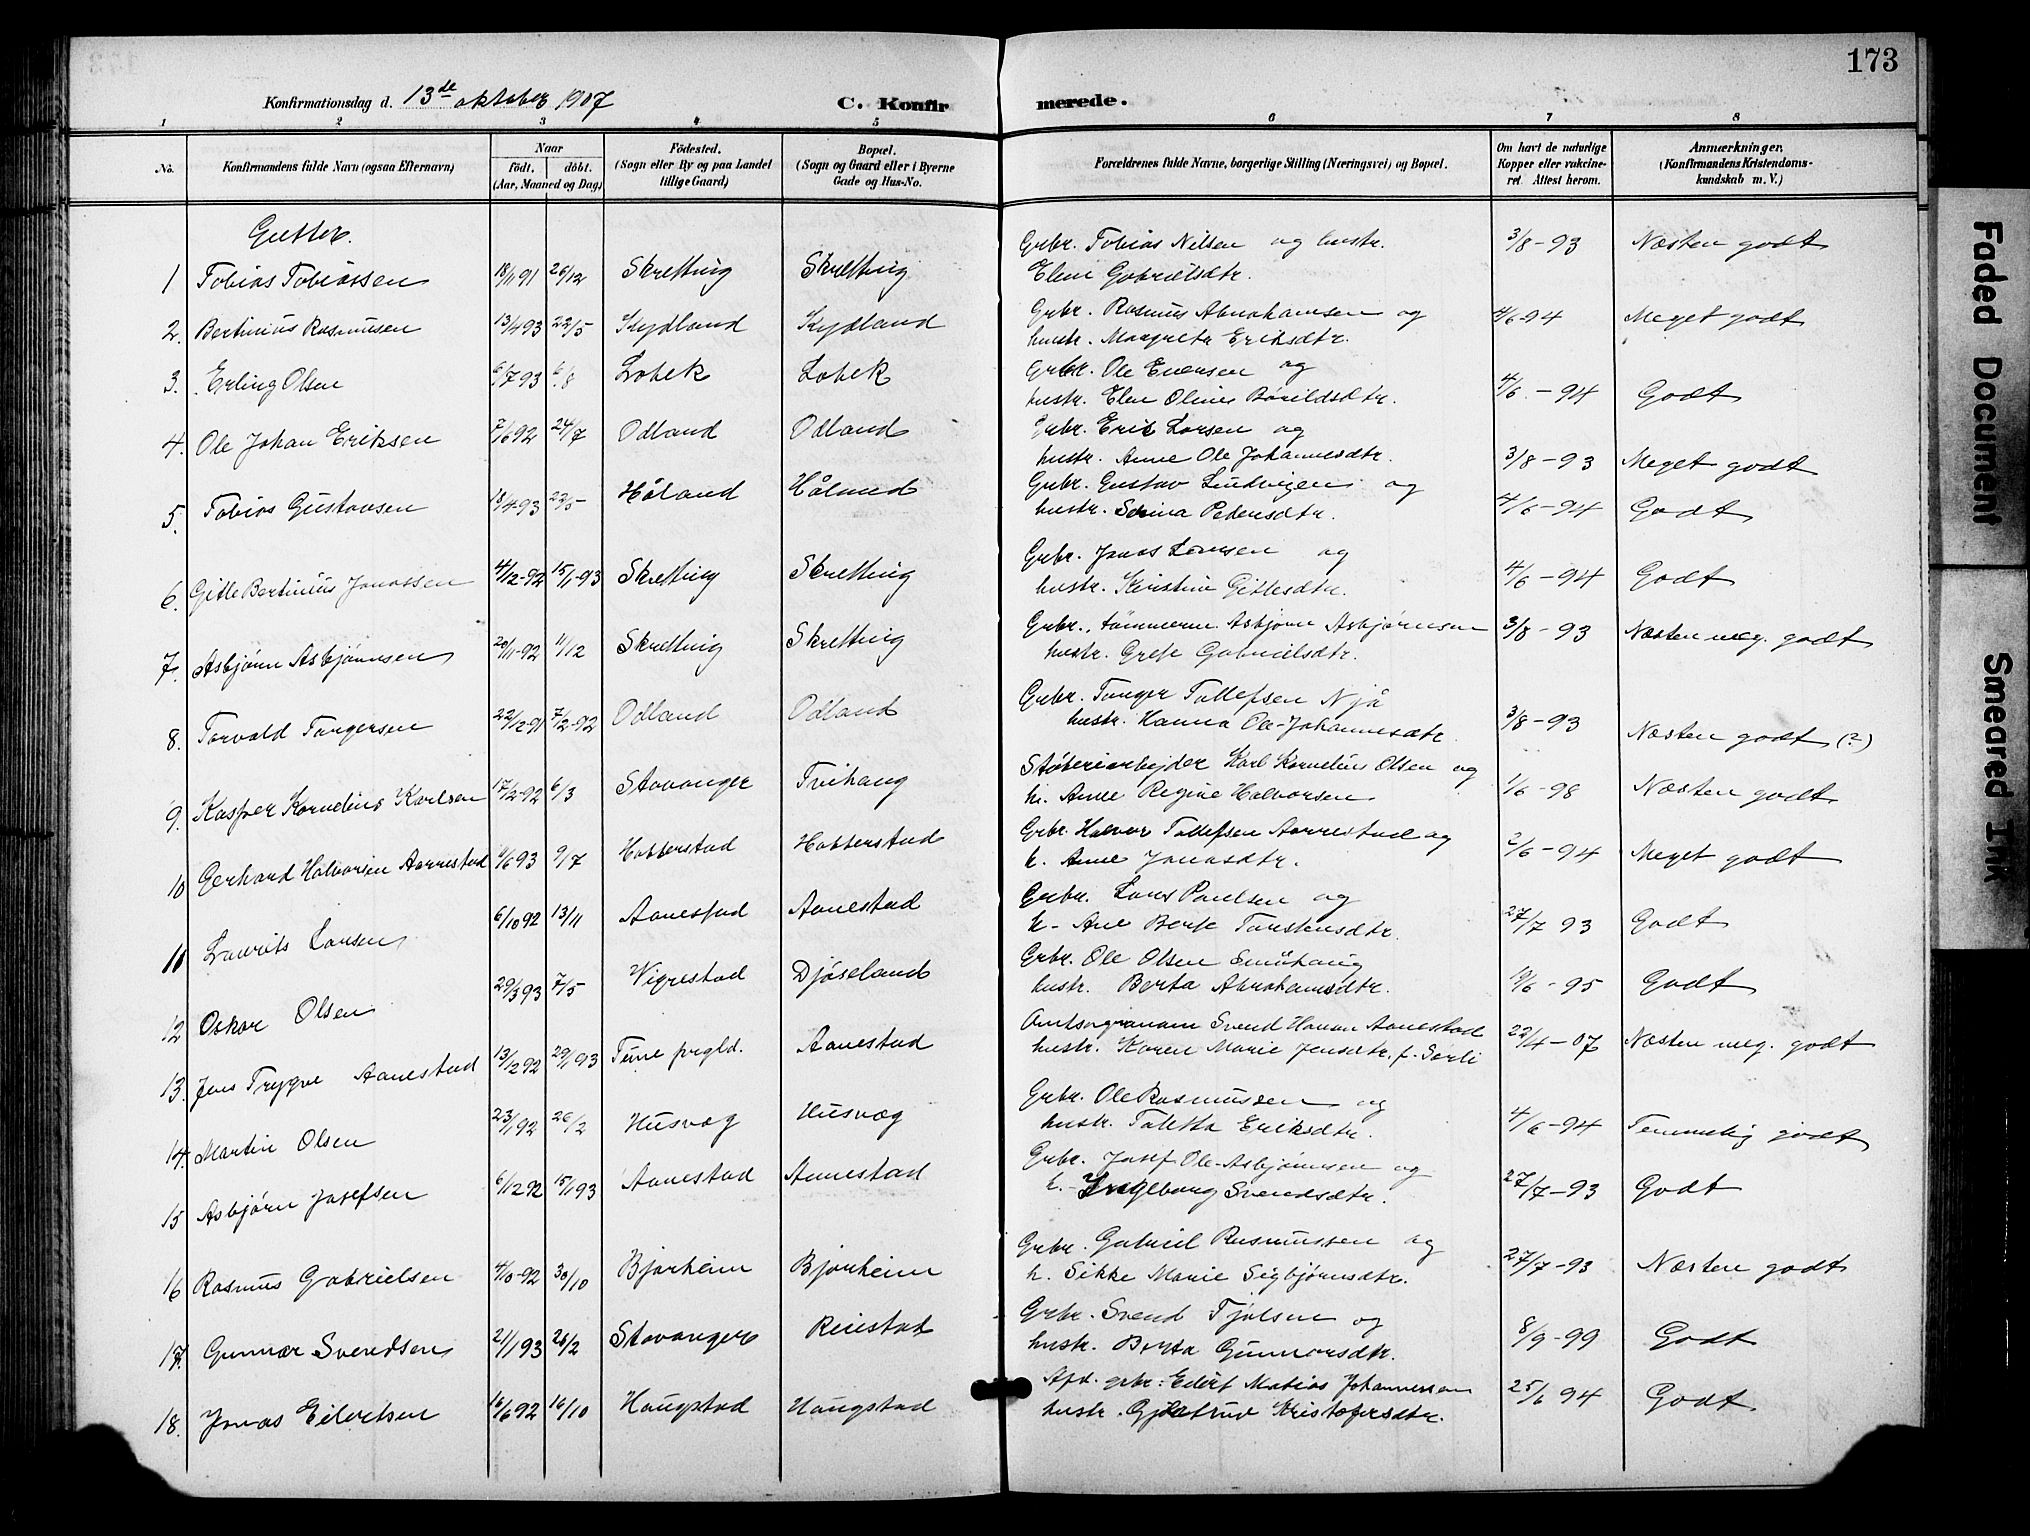 173
Konfirmationsdag d. 13de oktober 1907 C. Konfirmerede.
1 2 3 4 5 6 7 8
No. Konfirmandens fulde Navn (ogsaa Efternavn) Naar født. døbt. (Aar, Maaned og Dag) Födested. (Sogn eller By og paa Landet tillige Gaard) Bopæl. (Sogn og Gaard eller i Byerne Gade og Hus-No. Forældrenes fulde Navne, borgerlige Stilling (Næringsvei) og Bopæl. Om havt de naturlige Kopper eller vakcineret. Attest herom. Anmærkninger. (Konfirmandens Kristendomskundskab m. V.)
Gutter.
1 Tobias Tobiassen 18/11 91 26/12 Skretting Skretting Grbr. Tobias Nilsen og hustr. 3/8-93 Næsten godt
Elen Gabrielsdtr.
2. Bertinius Rasmusen 13/4 93 22/5 Kydland Kydland Grbr. Rasmus Abrahamsen og 4/6-94 Meget godt
hustr. Margreta Eriksdtr.
3. Erling Olsen 6/7 93 6/8 Lobek Lobek Grbr. Ole Evensen og
hustr. Elen Oline Bårildsdtr. 4/6-94 Godt
4. Ole Johan Eriksen 7/6 92 24/7 Odland Odland Grbr. Erik Larsen og
hustr. Anne Ole Johannesdtr. 3/8-93 Meget godt
5. Tobias Gustavsen 18/4 93 22/5 Håland Håland Grbr. Gustav og
hustr. Serina Pedersdtr. 4/6-94 Godt
6. Gitle Bertinius Jonassen 4/12-92 15/1-93 Skretting Skretting Grbr. Jonas Larsen og
hustr. Kristine Gitlesdtr. 4/6-94 Godt
7. Asbjørn Asbjørnsen 20/11-92 11/12 Skretting Skretting Grbr., tømmerm. Asbjørn Asbjørnsen 3/8-93 Næsten meg. godt
hustr. Grete Gabrielsdtr.
8. Torvald Torgersen 22/12-91 7/2-92 Odland Odland Grbr. Torger Tollefsen Njå
hustr. Hanna Ole-Johannesdtr. 3/8-93 Næsten godt (?)
9. Kasper Kornelius Karlsen 17/2-92 6/3 Stavanger Tvihaug Støberiarbejder Karl Kornelius Olsen og
h. Anne Regine Halvorsen 1/6-98 Næsten godt
10 Gerhard Halvorsen Aarrestad /6 93 9/7 Hobberstad Hobberstad Grbr. Halvor Tollefsen Aarrestad og
h. Anne Jonasdtr. 2/6-94 Meget godt
11 Laurits Larsen 6/10 92 13/11 Aanestad Aanestad Grbr. Lars Paulsen og
h. Ane Berte Torstensdtr. 27/7 93 Godt
12 Oskar Olsen 29/3 93 7/5 Vigrestad Djåseland Grbr. Ole Olsen Småhaug
hustr. Berta Abrahamsdtr. 19/6-95 Godt
13. Jens Trygve Aanestad 13/12 92 29/1 93 Time prgld. Aanestad Amtsagronom Svend Hansen Aanestad 22/4-07 Næsten meg. godt
hustr. Karen Marie Jensdtr. f. Sørli
14. Martin Olsen 23/1 92 26/2 Husvæg Husvæg Grbr. Ole Rasmussen og
hustr. Taletta Eriksdtr. 4/6-94 Temmelig godt
15 Asbjørn Josefsen 6/12 92 15/1 93 Aanestad Aanestad Grbr. Josef Ole-Asbjørnsen og
h. Ingeborg Svendsdtr. 27/7-93 Godt
16 Rasmus Gabrielsen 4/10-92 30/10 Bjorheim Bjorheim Grbr. Gabriel Rasmussen og
h. Sikke Marie Sigbjørnsdtr. 27/7-93 Næsten godt
17. Gunnar Svendsen 21/1 93 26/2 Stavanger Reiestad Grbr. Svend Tjølsen og
hustr. Berta Gunnarsdtr. 8/9-99 Godt
18. Jonas Eilertsen 16/6 92 16/10 Haugstad Haugstad Afd. grbr. Eilert Matias Johannessen
hustr. Gjertrud Kristofersdtr. 25/6 94 Godt
Faded Document
Smeared Ink